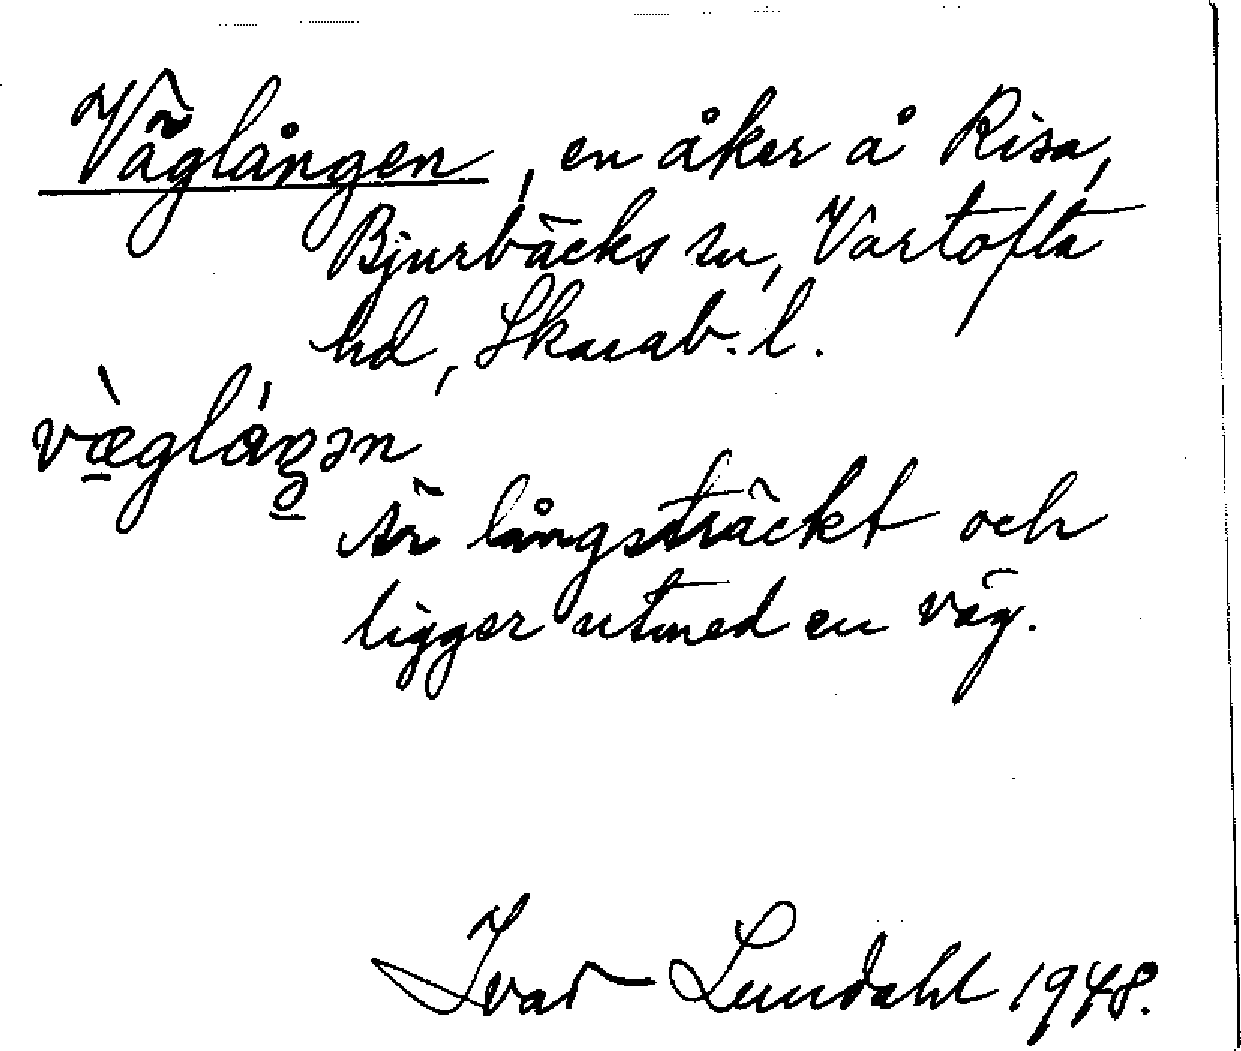 Väglången, en åker å Risa,
Bjurbäcks sn, Vartofta
hd, Skarab. l.
væ̀glȧ́gən
Är långsträckt och
ligger utmed en väg.
Ivar Lundahl 1948.